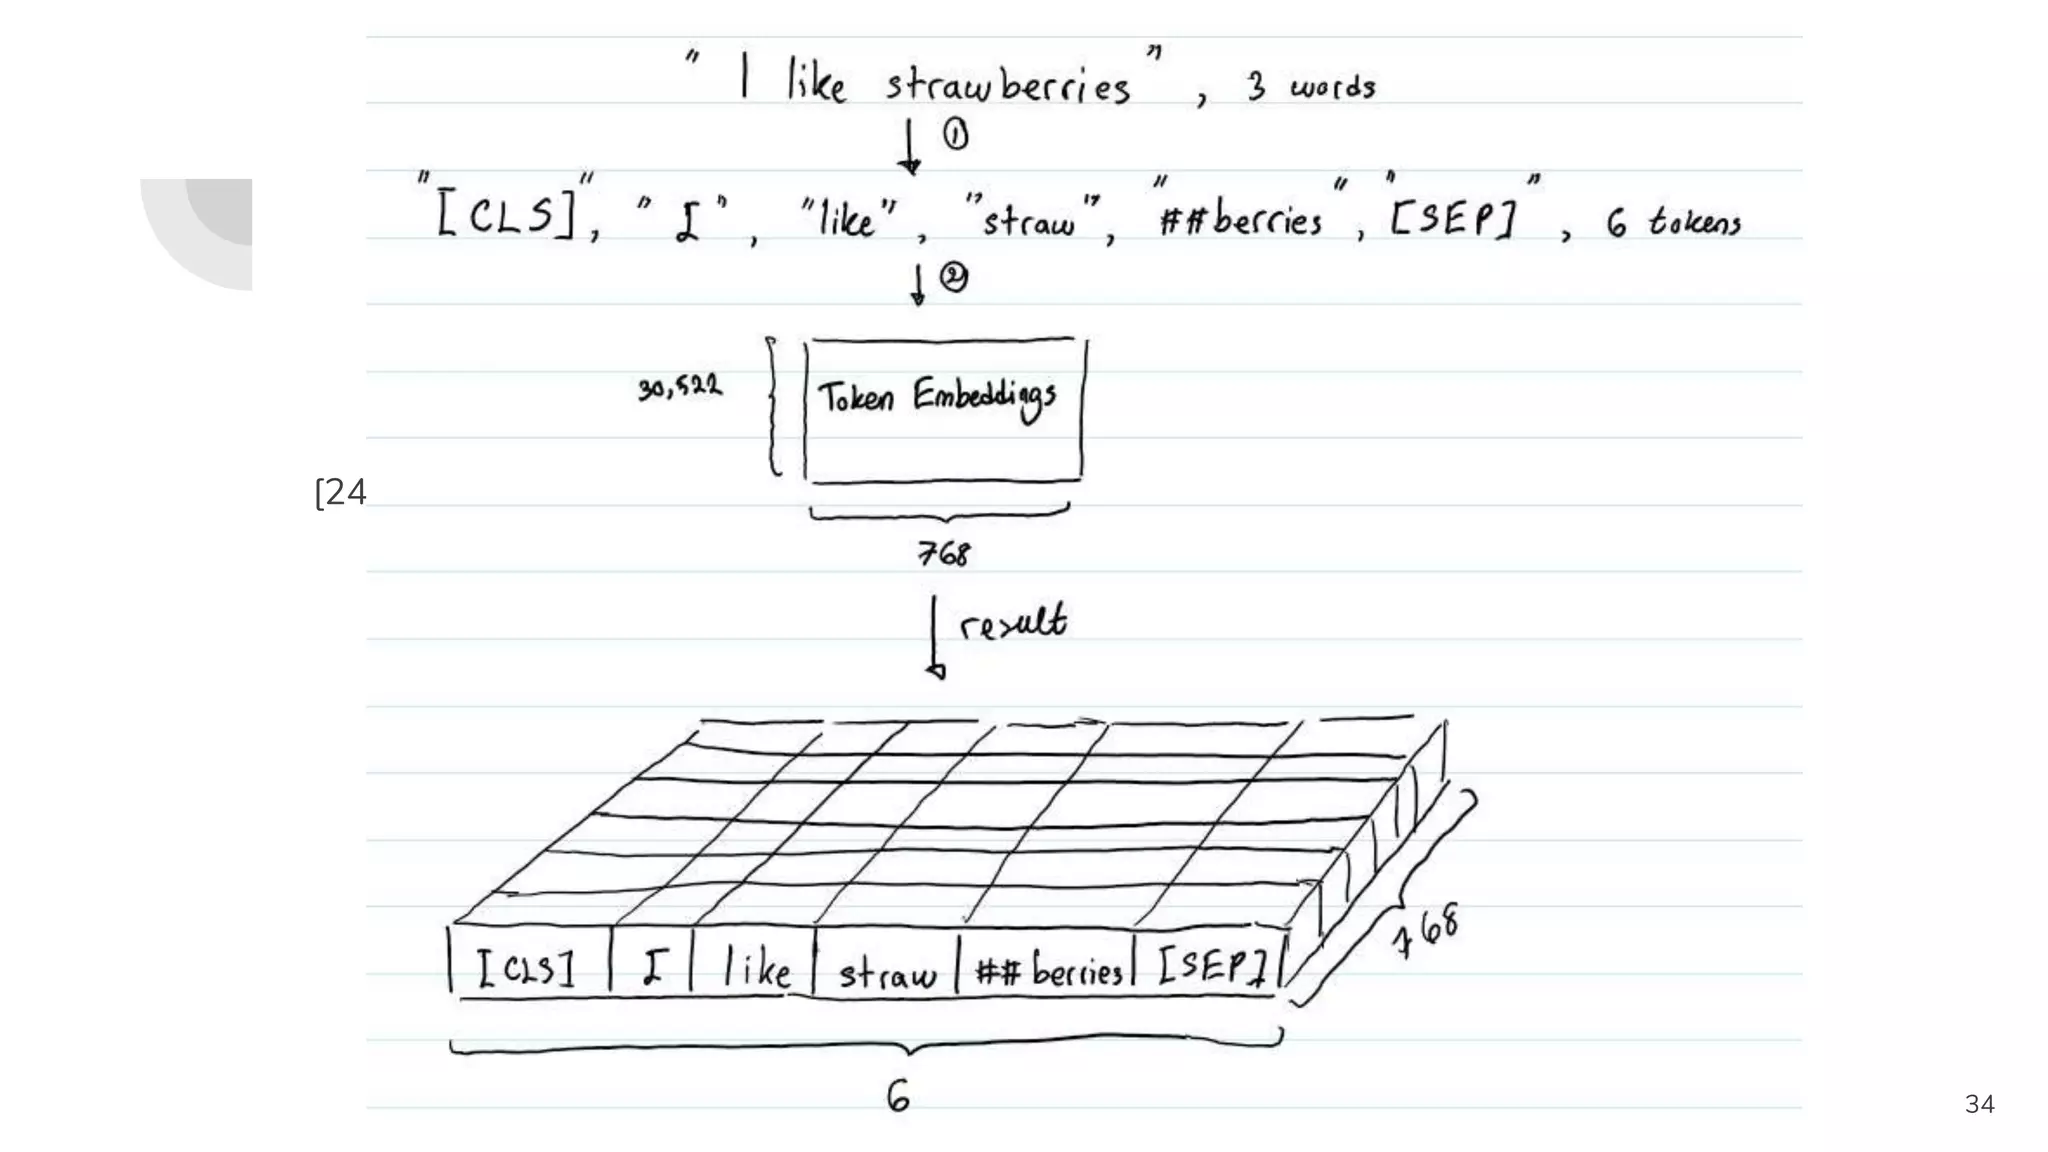 " I like strawberries ", 3 words
①
"[CLS]", "I", "like", "straw", "##berries", "[SEP]", 6 tokens
②
30,522
Token Embeddings
[24
768
result
768
[CLS] I like straw ##berries [SEP]
6
34